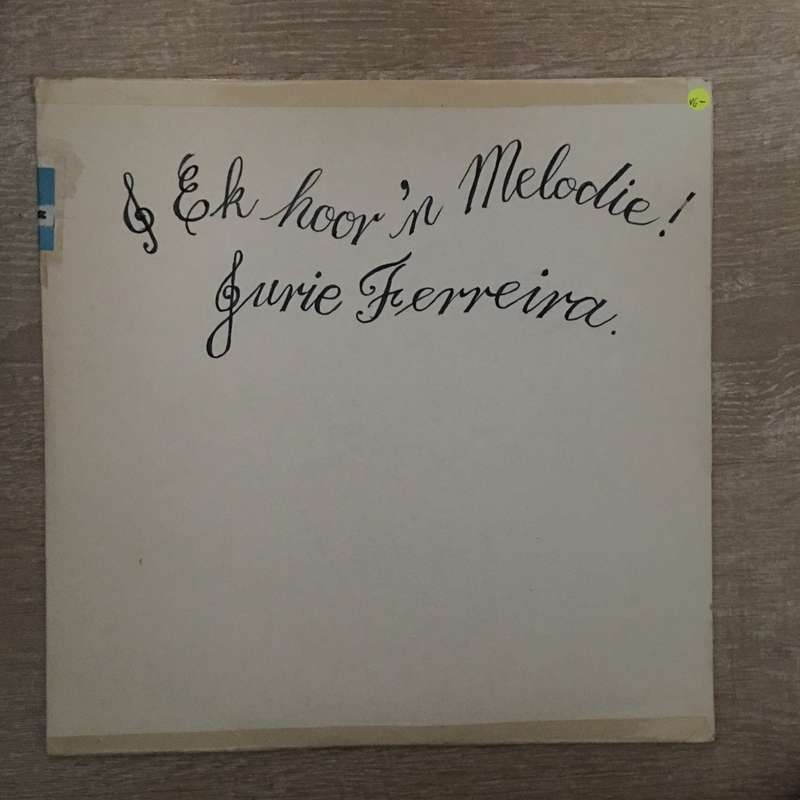 Ek hoor 'n Melodie!
Jurie Ferreira.